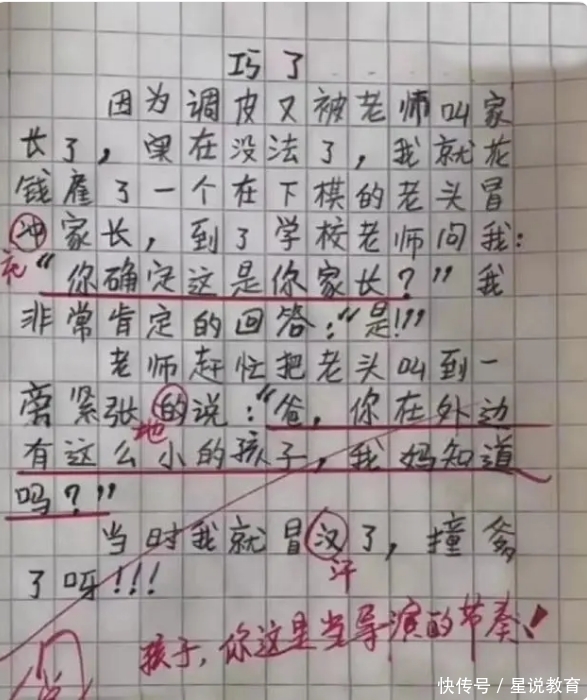 巧了
因为调皮又被老师叫家
长了，实在没法了，我就花
钱雇了一个在下棋的老头冒
冲家长，到了学校老师问我：
充
“你确定这是你家长？”我
非常肯定的回答：“是!!!”
老师赶忙把老头叫到一
旁紧张的说：“爸，你在外边
地
有这么小的孩子，我妈知道
吗？”
当时我就冒汉了，撞爹
汗
了呀!!!
孩子，你这是当导演的节奏！
快传号／星说教育